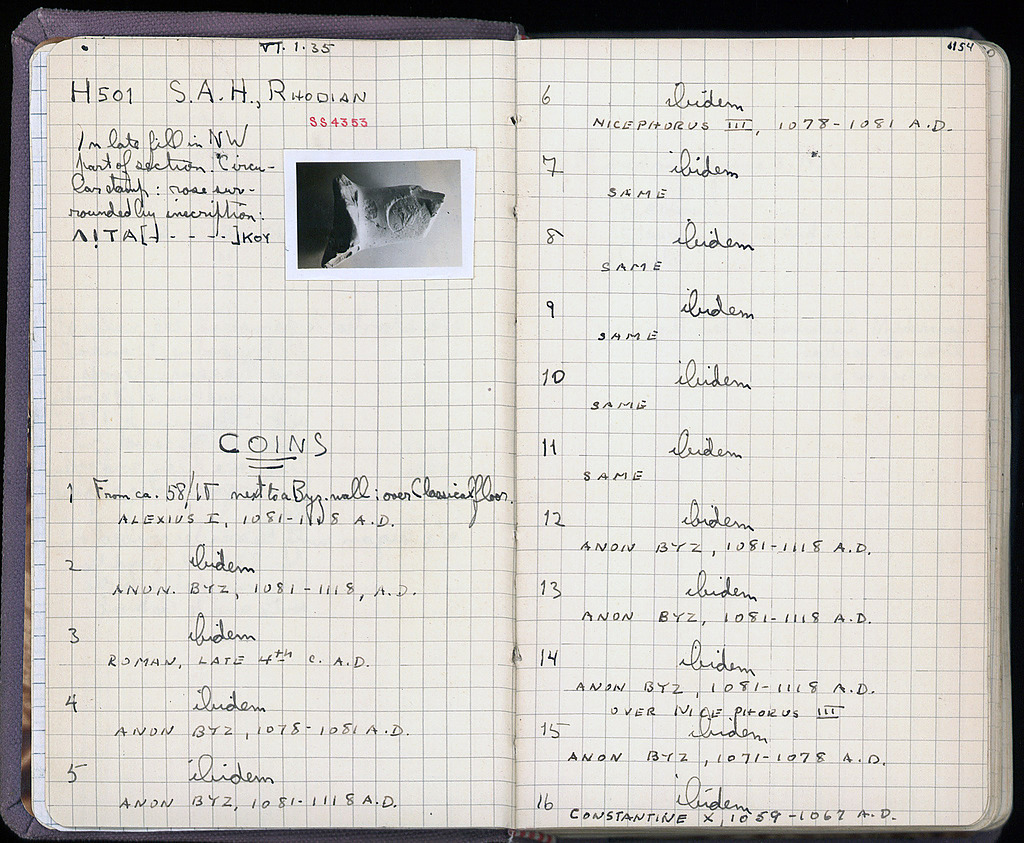 VI. 1. 35
H501 S.A.H., RHODIAN
SS4353
In late fill in NW
part of section. Circu-
lar stamp: rose sur-
rounded by inscription:
ΛΙΤΑ[- - - -]ΚΟΥ
COINS
1 From ca. 58/ΙΤ next to a Byz. wall: over Classical floor.
ALEXIUS I, 1081-1118 A.D.
2 ibidem
ANON. BYZ, 1081-1118, A.D.
3 ibidem
ROMAN, LATE 4th C. A.D.
4 ibidem
ANON BYZ, 1078-1081 A.D.
5 ibidem
ANON BYZ, 1081-1118 A.D.
1154
6 ibidem
NICEPHORUS III, 1078-1081 A.D.
7 ibidem
SAME
8 ibidem
SAME
9 ibidem
SAME
10 ibidem
SAME
11 ibidem
SAME
12 ibidem
ANON BYZ, 1081-1118 A.D.
13 ibidem
ANON BYZ, 1081-1118 A.D.
14 ibidem
ANON BYZ, 1081-1118 A.D.
OVER NICEPHORUS III
15 ibidem
ANON BYZ, 1071-1078 A.D.
16 ibidem
CONSTANTINE X, 1059-1067 A.D.